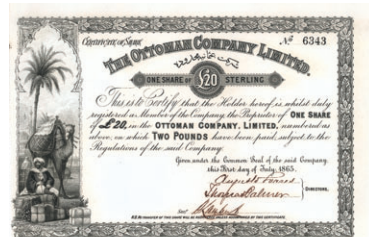 Certificate of Share
No 6343
THE OTTOMAN COMPANY LIMITED.
ONE SHARE OF £20 STERLING
This is to Certify that the Holder hereof, is whilst duly
registered as Member of the Company, the Proprietor of ONE SHARE
of £20, in the OTTOMAN COMPANY, LIMITED, numbered as
above, on which TWO POUNDS have been paid, subject to the
Regulations of the said Company.
Given under the Common Seal of the said Company,
this First day of July, 1865.
DIRECTORS.